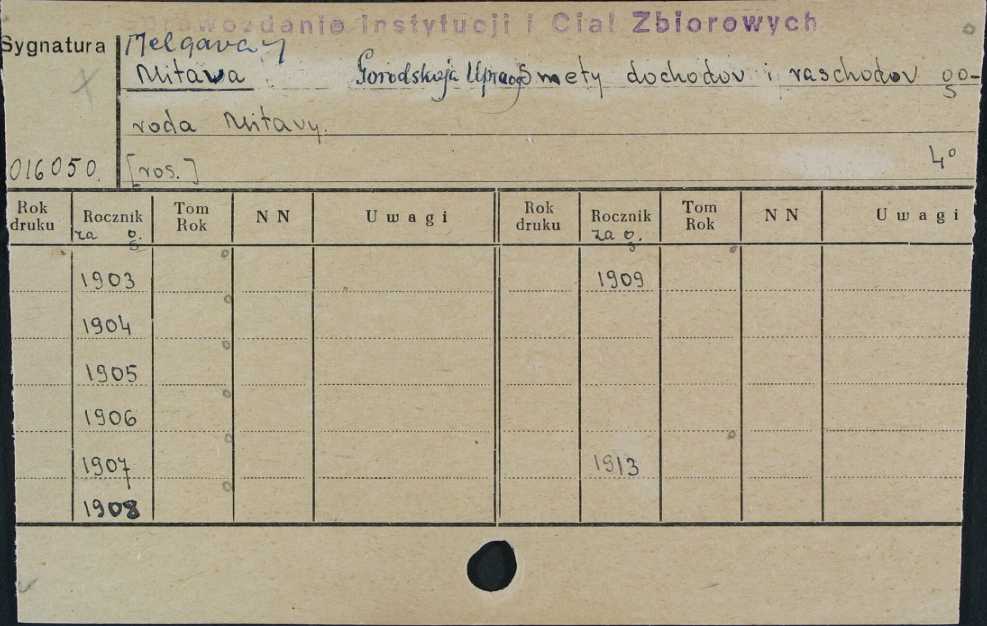 Sprawozdanie Instytucji i Ciał Zbiorowych
Sygnatura
Mitawa Gorodskaja Uprava Smety dochodov i raschodov go-
roda Mitavy.
016050. [ros.] 4°
Rok druku Rocznik Tom Rok NN Uwagi Rok druku Rocznik Tom Rok NN Uwagi
za g. za g.
1903 1909
1904
1905
1906
1907 1913
1908